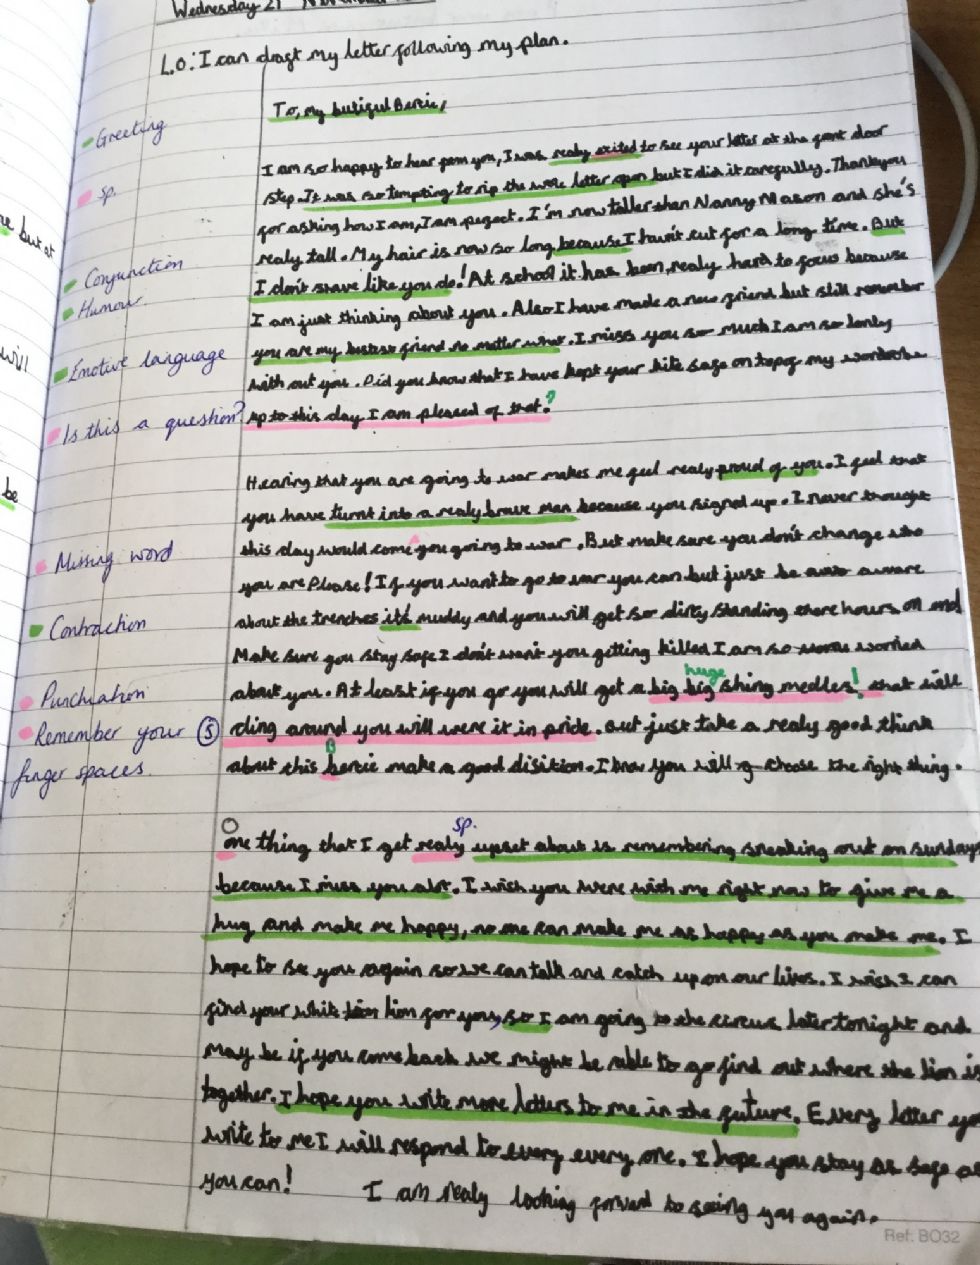 Wednesday 21
L.O: I can draft my letter following my plan.
To, my butiful Bertie,
Greeting
I am so happy to hear from you, I was realy exited to see your letter at the front door
sp.
step. It was so tempting to rip the wole letter open but I did it carefully. Thankyou
for asking how I am, I am perfect. I'm now taller than Nanny Mason and she's
realy tall. My hair is now so long because I havn't cut for a long time. But
Conjunction
I don't shave like you do! At school it has been realy hard to focus because
Humour
I am just thinking about you. Also I have made a new friend but still remember
Emotive language
you are my bestest friend no matter what. I miss you so much I am so lonly
with out you. Did you know that I have kept your kite safe on top of my wordrobe
Is this a question?
up to this day I am pleased of that.?
Hearing that you are going to war makes me feel realy proud of you. I feel that
you have turnt into a realy brave man because you signed up. I never thought
Missing word
this day would come you going to war. But make sure you don't change who
you are Please! If you want to go to war you can but just be aware
Contraction
about the trenches it's muddy and you will get so dirty standing there hours on end
Make sure you stay safe I don't want you getting killed I am so worried
huge
Punctuation
about you. At least if you go you will get a big big shing medles! that will
Remember your finger spaces
S
cling around you will were it in pride. but just take a realy good think
B
about this bertie make a good disition. I know you will choose the right thing.
sp.
One thing that I get realy upset about is remembering sneaking out on sundays
because I miss you alot. I wish you were with me right now to give me a
hug and make me happy, no one can make me as happy as you make me. I
hope to see you again so we can talk and catch up on our lives. I wish I can
find your white lion for you, so I am going to the circus later tonight and
may be if you come back we might be able to go find out where the lion is
together. I hope you write more letters to me in the future. Every letter yo
write to me I will respond to every every one. I hope you stay as safe as
you can! I am realy looking forward to seeing you again.
Ref: BO32
be
but at
will